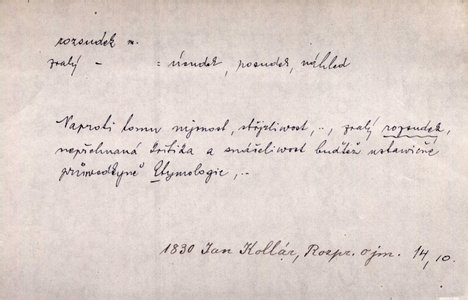 rozsudek m.
zralý - = úsudek, posudek, náhled
Naproti tomu nejmost, stojpliwost, .., zralý rozsudek,
nepřehnaná kritika a snášeliwost buďtež ustawičné
průwodkyně Etymologie, ..
1830 Jan Kollár, Rozpr. o jm. 14, 10.